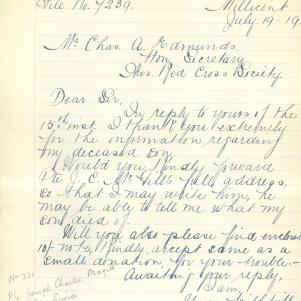 File No. 7239.
Millicent
July 19-19
Mr Chas. A. Edmunds.
Hon. Secretary
Aus. Red Cross Society
Dear Sir.
In reply to yours of the
15th inst. I thank you extremely
for the information regarding
my deceased son.
Would you kindly forward
Pte. C. McGill's full address,
so that I may write him, he
may be able to tell me what my
son died of.
Will you also please find enclosed
10/- note, kindly accept same as a
small donation for your trouble.-
Awaiting your reply.
I am,
No 231
Pte Joseph Charles